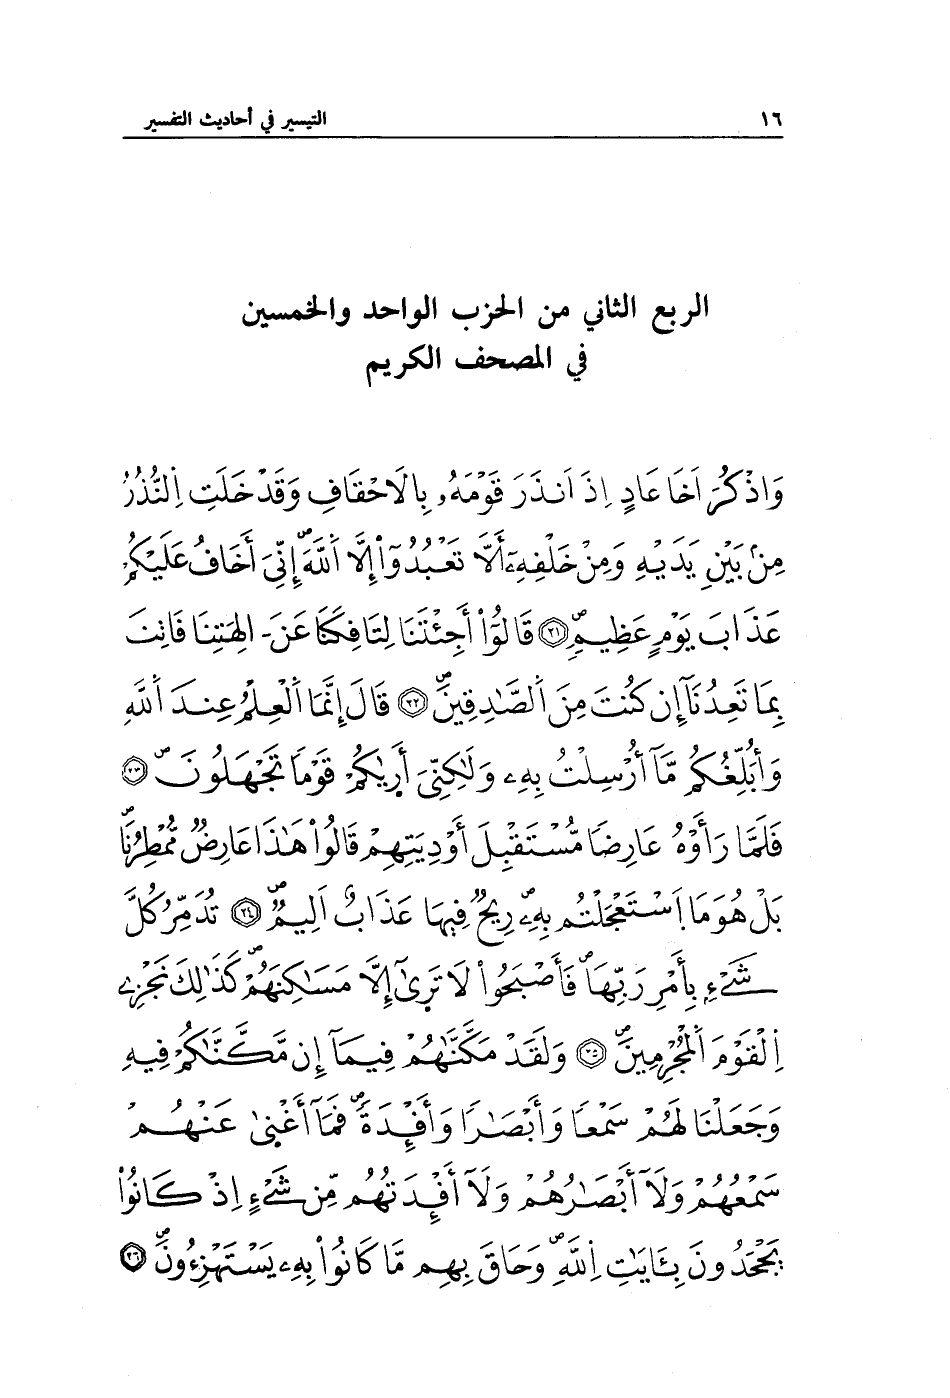 ١٦
التيسير في أحاديث التفسير
الربع الثاني من الحزب الواحد والخمسين
في المصحف الكريم
وَاذْكُرَ اَخَا عَادٍ اِذَ اَنذَرَ قَوْمَهُۥ بِالَاحْقَافِ وَقَدْ خَلَتِ اِ۬لنُّذُرُ
مِنۢ بَيْنِ يَدَيْهِ وَمِنْ خَلْفِهِۦٓ أَلَّا تَعْبُدُوٓاْ إِلَّا اَ۬للَّهَ إِنِّيَ أَخَافُ عَلَيْكُمْ
عَذَابَ يَوْمٍ عَظِيمٍ ٢١ قَالُوٓاْ أَجِئْتَنَا لِتَافِكَنَا عَنَ ـ اٰلِهَتِنَا فَاتِنَا
بِمَا تَعِدُنَآ إِن كُنتَ مِنَ اَ۬لصَّٰدِقِينَ ٢٢ قَالَ إِنَّمَا اَ۬لْعِلْمُ عِندَ اَ۬للَّهِ
وَأُبَلِّغُكُم مَّآ أُرْسِلْتُ بِهِۦ وَلَٰكِنِّيَ أَر۪يٰكُمْ قَوْمًا تَجْهَلُونَ ٢٣
فَلَمَّا رَأَوْهُ عَارِضًا مُّسْتَقْبِلَ أَوْدِيَتِهِمْ قَالُواْ هَٰذَا عَارِضٌ مُّمْطِرُنَا
بَلْ هُوَ مَا اَ۪سْتَعْجَلْتُم بِهِۦ رِيحٌ فِيهَا عَذَابٌ اَلِيمٌ ٢٤ تُدَمِّرُ كُلَّ
شَےْءِۢ بِأَمْرِ رَبِّهَا فَأَصْبَحُواْ لَا تَر۪يٰٓ إِلَّا مَسَٰكِنَهُمْ كَذَٰلِكَ نَجْزِے
اِ۬لْقَوْمَ اَ۬لْمُجْرِمِينَ ٢٥ وَلَقَدْ مَكَّنَّٰهُمْ فِيمَآ إِن مَّكَّنَّٰكُمْ فِيهِ
وَجَعَلْنَا لَهُمْ سَمْعًا وَأَبْصَٰرًا وَأَفْـِٕدَةً فَمَآ أَغْن۪يٰ عَنْهُمْ
سَمْعُهُمْ وَلَآ أَبْصَٰرُهُمْ وَلَآ أَفْـِٕدَتُهُم مِّن شَےْءٍ اِذْ كَانُواْ
يَجْحَدُونَ بِـَٔايَٰتِ اِ۬للَّهِ وَحَاقَ بِهِم مَّا كَانُواْ بِهِۦ يَسْتَهْزِءُونَ ٢٦